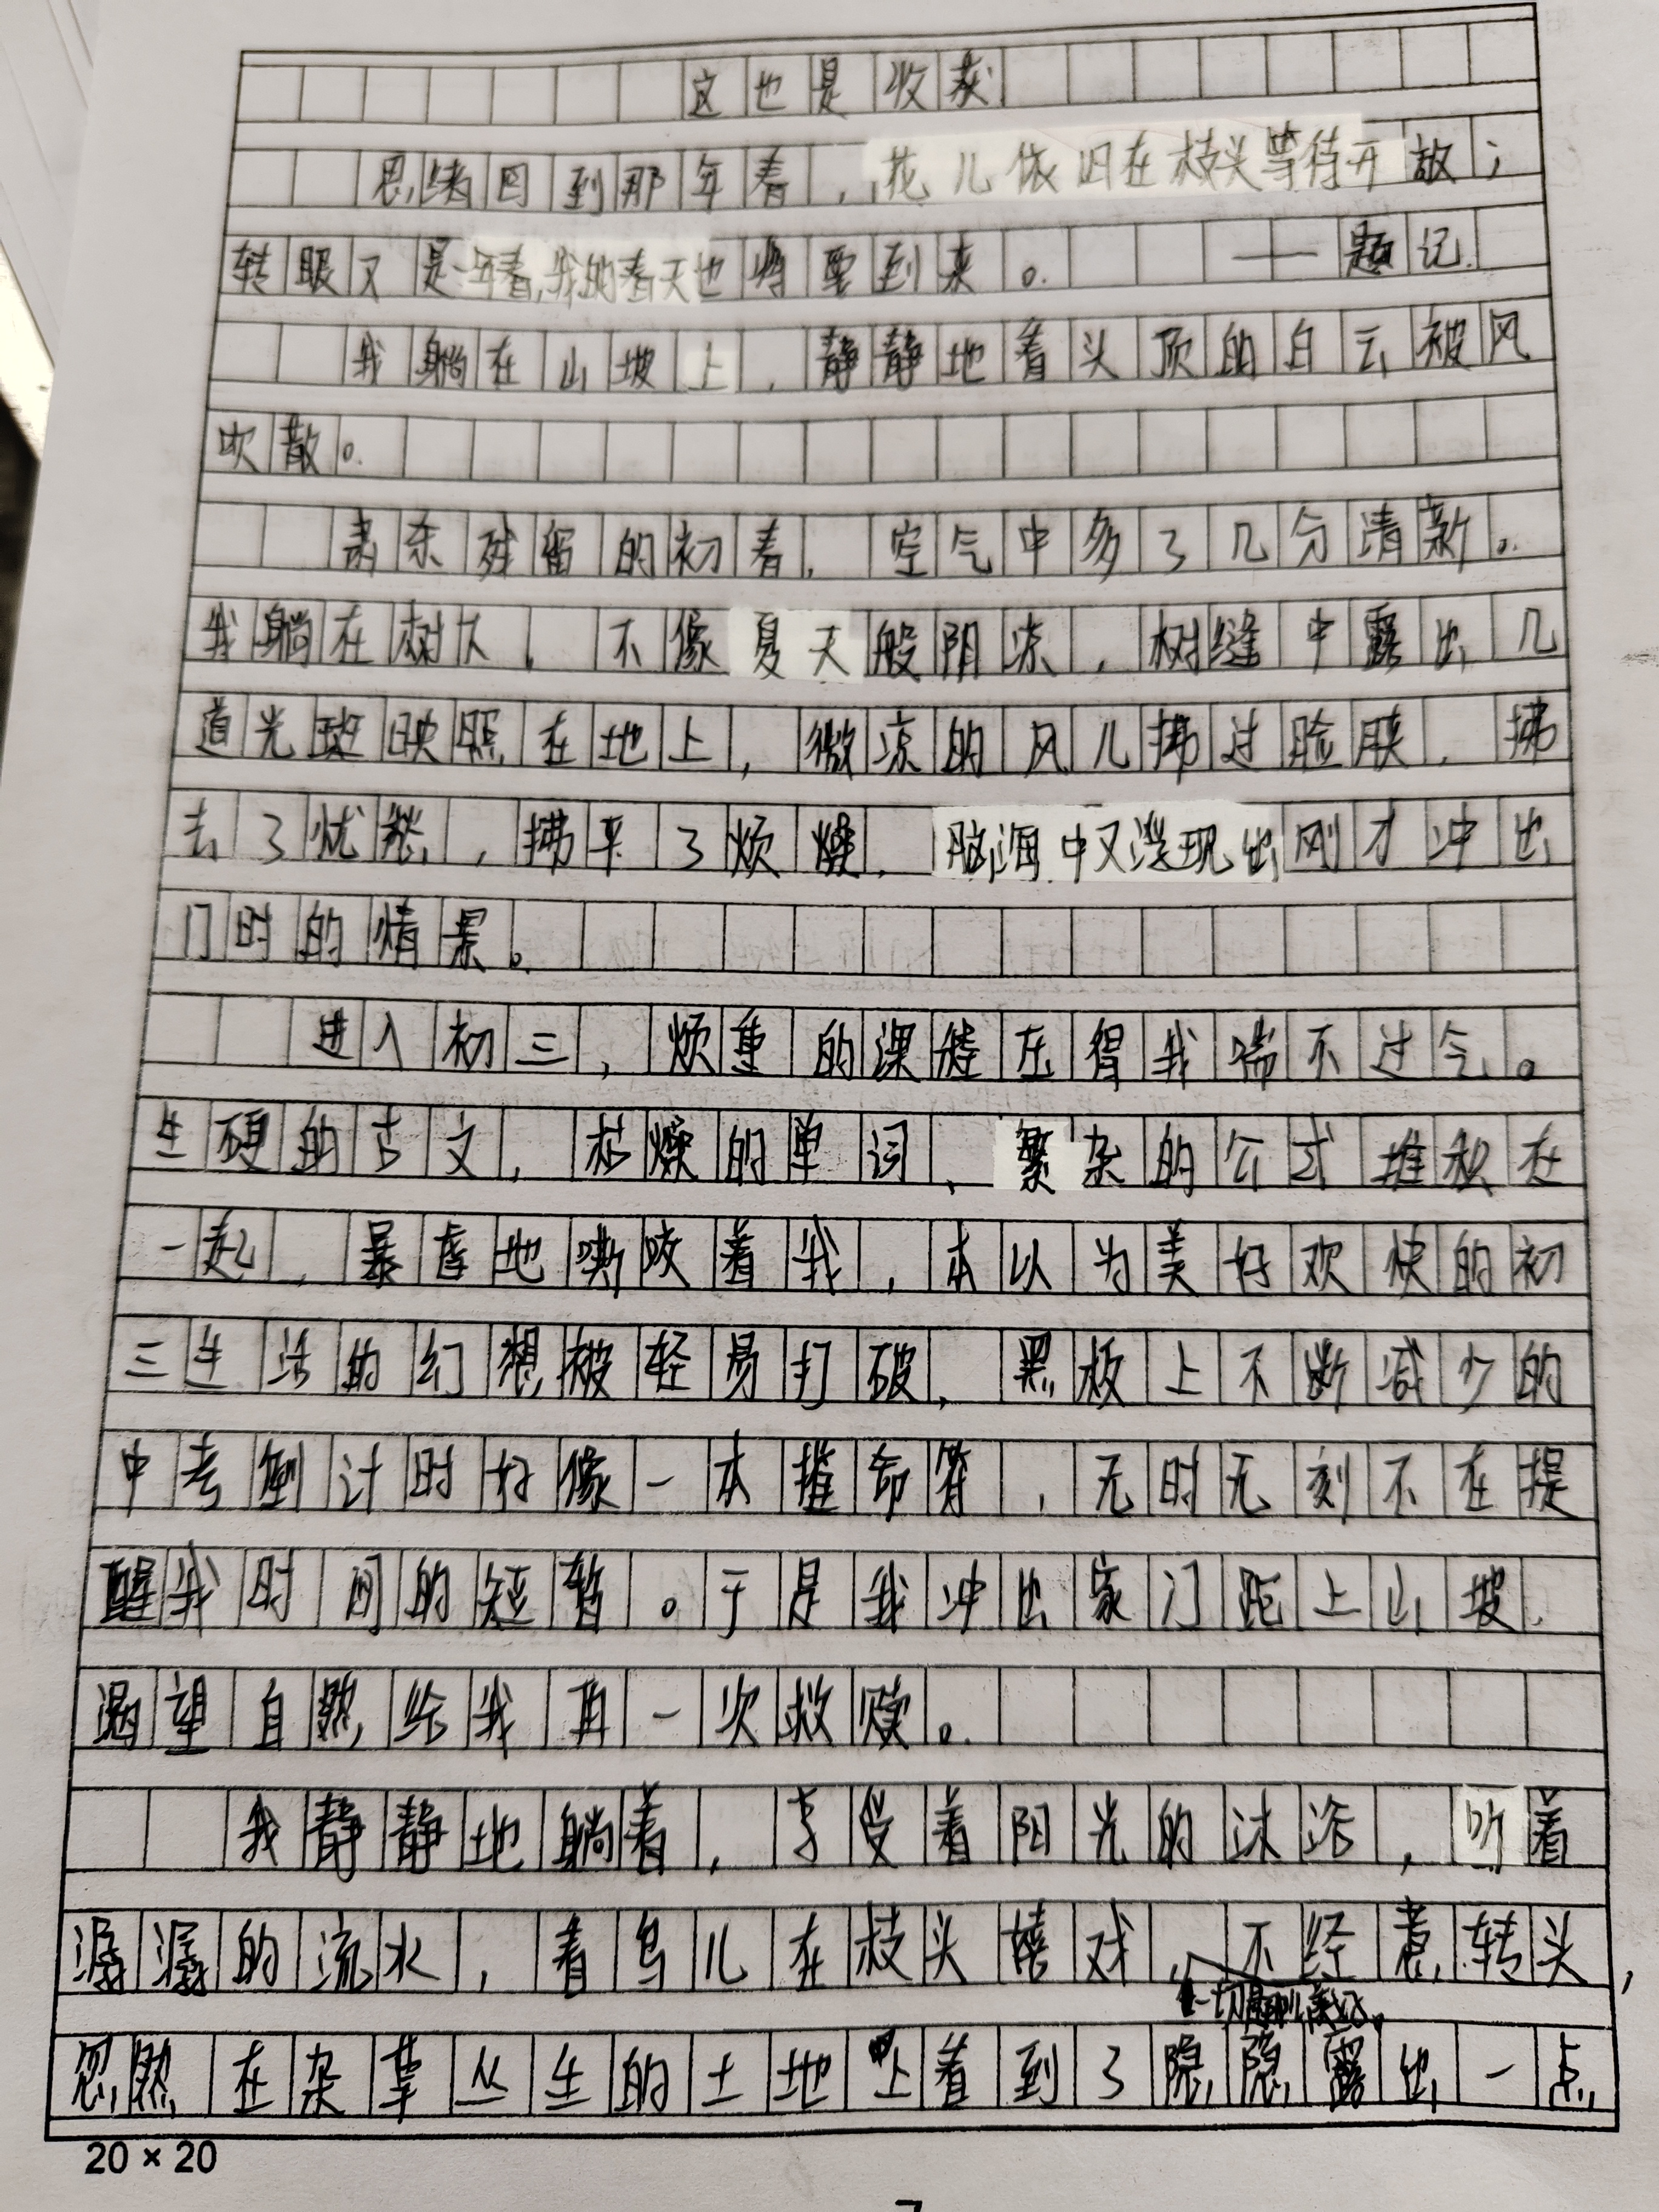 这也是收获
思绪回到那年春，花儿依旧在枝头等待开放；
转眼又是一年春，我的春天也将要到来。——题记
我躺在山坡上，静静地看头顶的白云被风
吹散。
肃冬残留的初春，空气中多了几分清新。
我躺在树下，不像夏天般阴凉，树缝中露出几
道光斑映照在地上，微凉的风儿拂过脸颊，拂
去了忧愁，拂平了烦燥，脑海中又浮现出刚才冲出
门时的情景。
进入初三，烦重的课楚压得我喘不过气。
生硬的古文，枯燥的单词、繁杂的公式堆积在
一起，暴虐地嘶咬着我，本以为美好欢快的初
三生活的幻想被轻易打破，黑板上不断减少的
中考倒计时好像一本摧命符，无时无刻不在提
醒我时间的短暂。于是我冲出家门跑上山坡，
渴望自然给我再一次救赎。
我静静地躺着，享受着阳光的沐浴，听着
潺潺的流水，看鸟儿在枝头嬉戏，不经意转头，
一切是那儿美好。
忽然在杂草丛生的土地上看到了隐隐露出一点
20×20